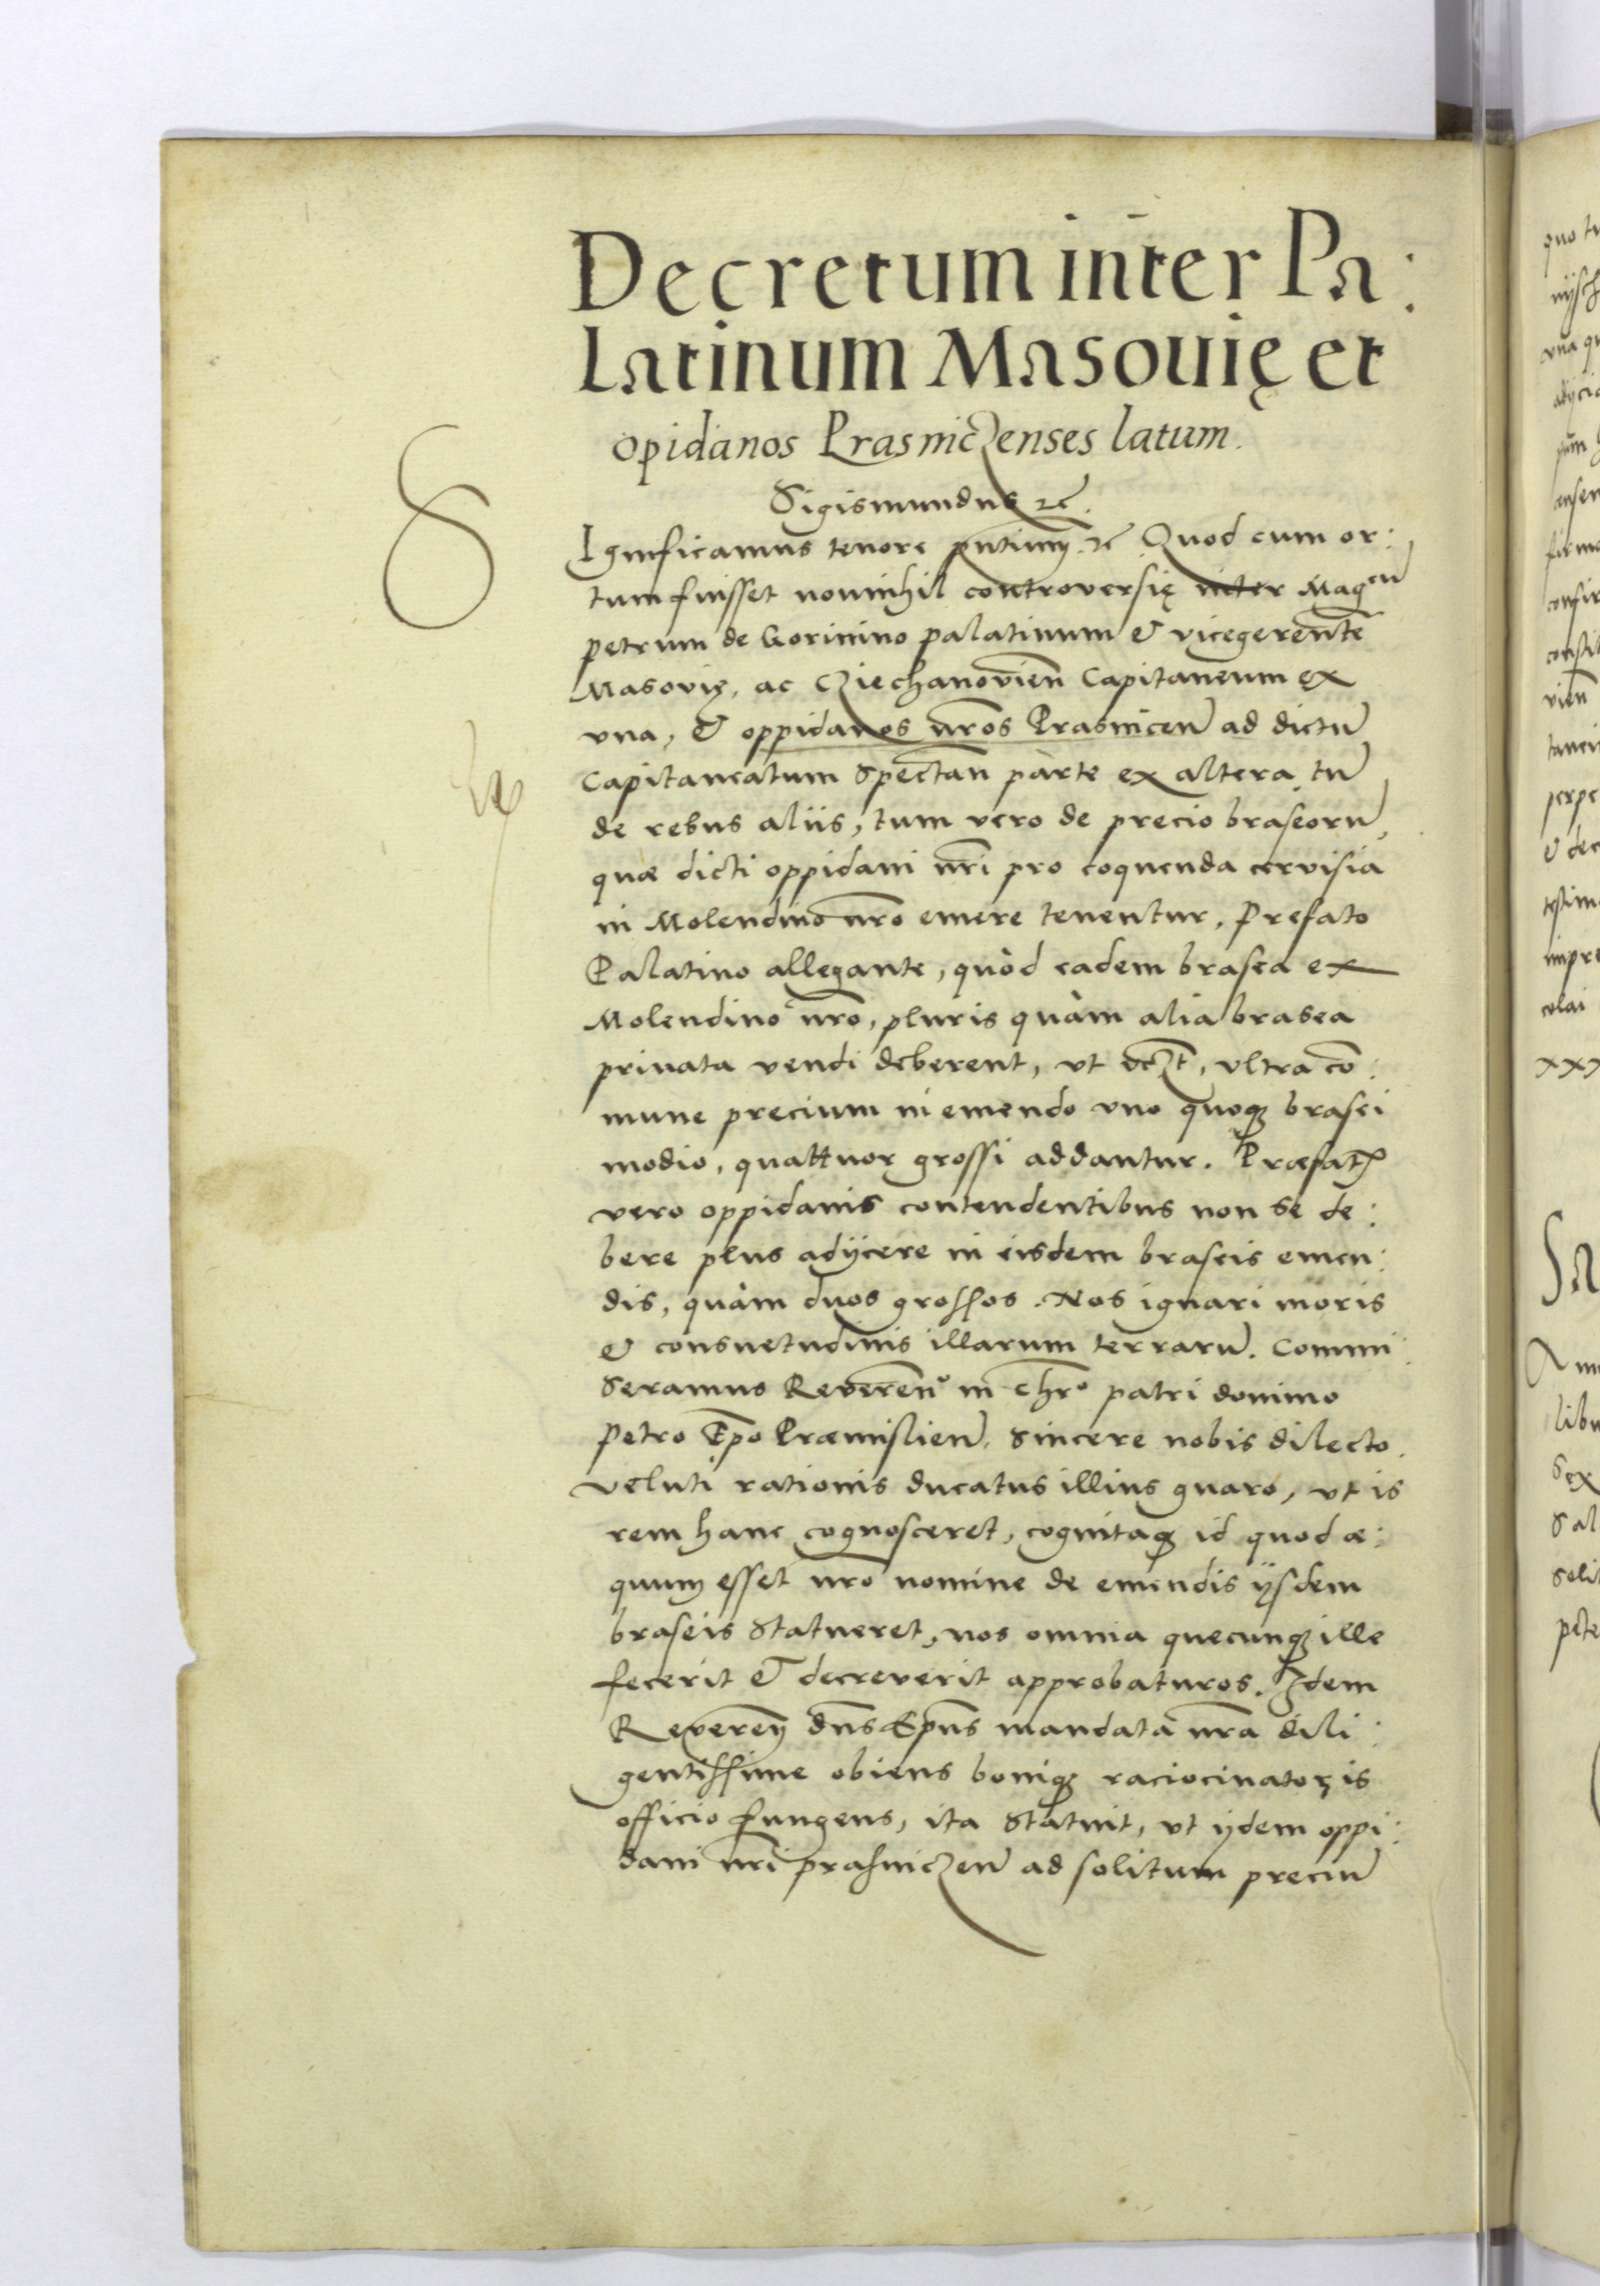 Decretum inter Pa:
latinum Masouię et
opidanos Prasniczenses latum.
Sigismundus ⁊c̄.
SIgnificamus tenore pn̄tium ⁊c̄ Quod cum or:
tum fuisset nonnihil controversię inter Magcū
petrum de Gorinino palatinum & vicegerentē
Masovię, ac Cziechanovien̄ Capitaneum ex
vna, & oppidanos nr̄os Prasnicen̄ ad dictū
Capitaneatum Spectan̄ parte ex altera, tū
de rebus aliis, tum vero de precio braseorū,
quæ dicti oppidani nr̄i pro coquenda cervisia
in Molendino nr̄o emere tenentur, Prefato
Palatino allegante, quòd eadem brasea ex
Molendino nr̄o, pluris quàm alia brasea
priuata vendi deberent, vt vcz̄t, vltra cō:
mune precium in emendo vno quoq brasei
modio, quattuor grossi addantur. Præfatꝭ
vero oppidanis contendentibus non se de:
bere plus adijcere in eisdem braseis emen:
dis, quàm duos grossos. Nos ignari moris
& consuetudinis illarum terrarū. Commi
Seramus Reveren̄º in Chr̄º patri domino
Petro Ep̄o Præmislien̄, Sincere nobis dilecto,
veluti rationis ducatus illius gnaro, vt is
rem hanc cognosceret, cognitaq id quod æ:
quum esset nr̄o nomine de emendis ijsdem
braseis Statueret, nos omnia quecunq ille
fecerit & decreverit approbaturos. Idem
Reveren̄ dn̄s Ep̄us mandata nr̄a dili:
gentissime obiens boniq raciocinatoris
officio fungens, ita Statuit, vt ijdem oppi:
dani nr̄i prasniczen̄ ad solitum preciū